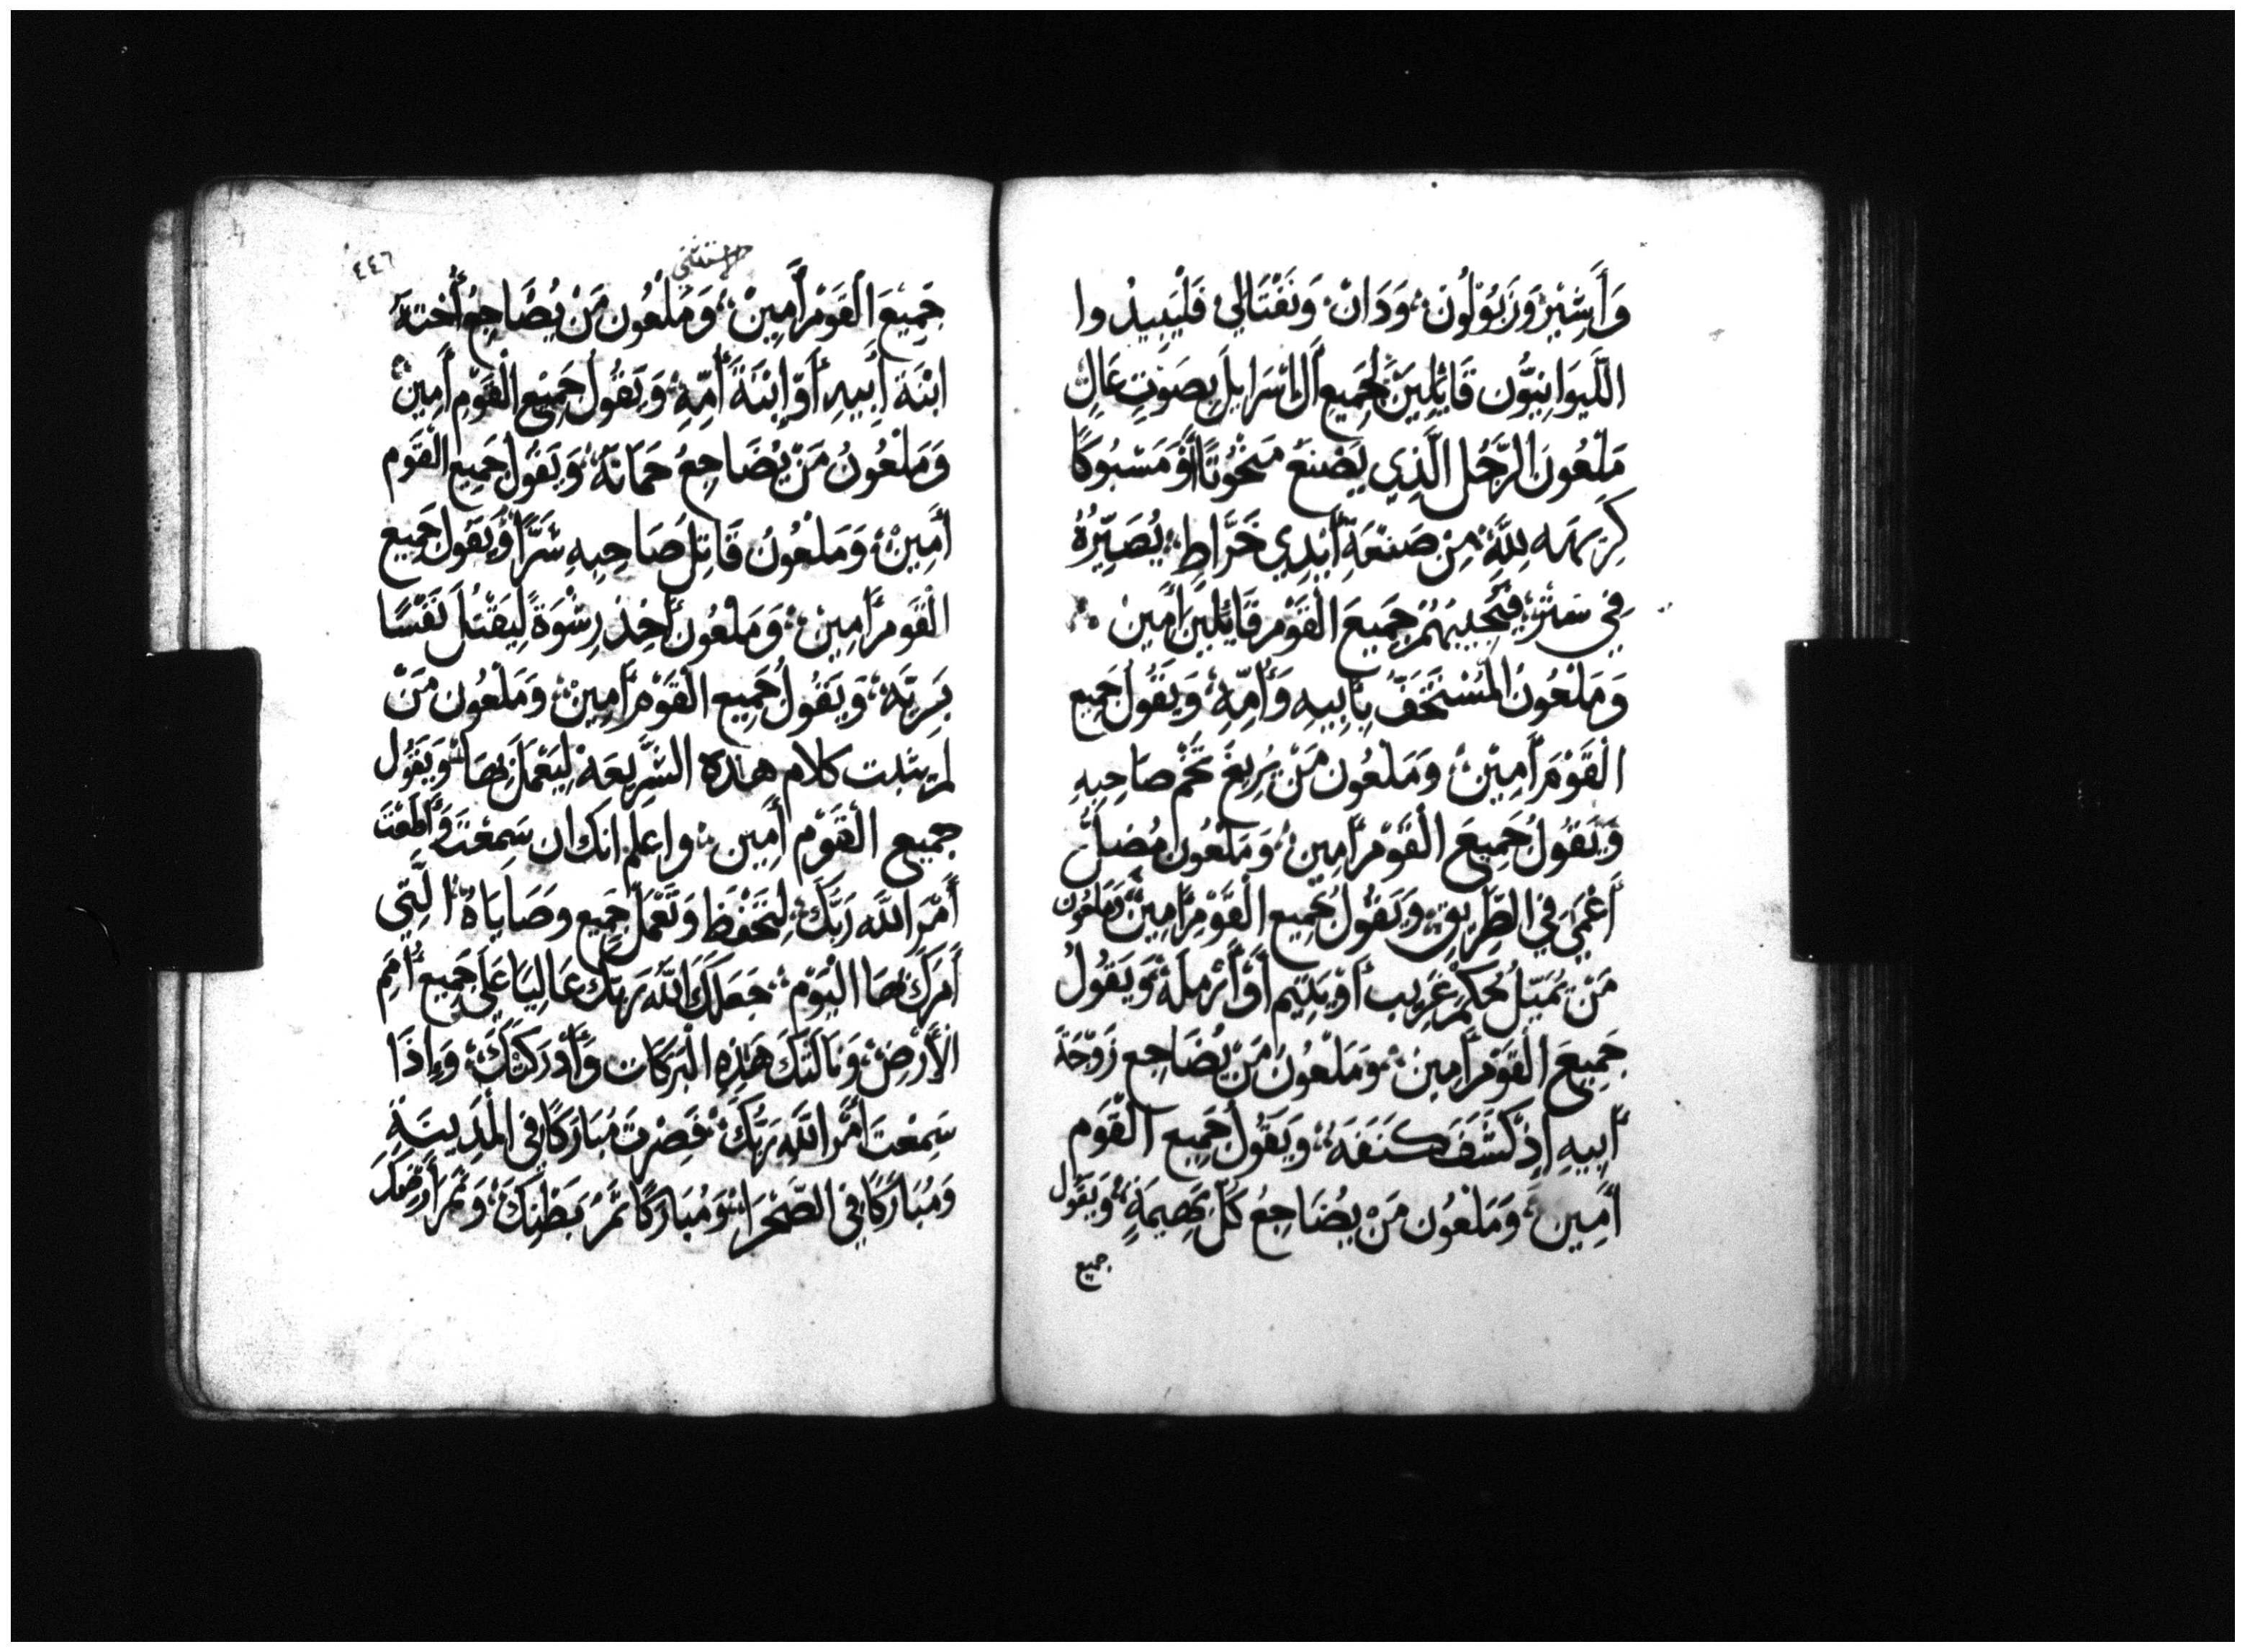 وَأَشِيْر وَزَبُوْلُون وَدَانْ وَنَفْتَالِي فَلْيَبِيدُوا
اللَّيْوَانِيُّون قَائِلِينَ لِجَمِيعِ أَلْ إسْرَايِلَ بِصَوْتٍ عَالٍ
مَلْعُون الرَّجُل الَّذِي يَصْنَعْ مَنْحُوتًا أَوْ مَسْبُوكًا
كَرِيهَه لِلَّهِ مِنْ صَنْعَةِ أَيْدِي خَرَّاطٍ يُصَيِّرُهُ
فِي سَتْرٍ فَيُجِيبَهُمْ جَمِيعَ الْقَوْم قَائِلِينَ أَمِينْ
وَمَلْعُونُ الْمُسْتَخَفّ بِأَبِيهِ وَأُمِّهِ وَيَقُولُ جَمِيع
الْقَوْمَ أَمِيْنْ وَمَلْعُون مَنْ يُرِيغَ تُخْم صَاحِبِهِ
وَيَقُولُ جَمِيعَ الْقَوْم أَمِينْ وَمَلْعُون مُضِلُّ
أَعْمَى فِي الطَّرِيقِ وَيَقُولُ جَمِيع الْقَوْمِ أَمِينْ وَمَلْعُون
مَنْ يُمَيِّلُ حُكْمَ غَرِيب أَوْ يَتِيم أَوْ أَرْمِلَهْ وَيَقُولُ
جَمِيعَ الْقَوْم أَمِينْ وَمَلْعُونُ مَنْ يُضَاجِع زَوْجَةَ
أَبِيهِ إِذْ كَشَفَ كَنَفَهُ وَيَقُولُ جَمِيع الْقَوْم
أَمِينْ وَمَلْعُون مَنْ يُضَاجِعُ كُلَّ بَهِيمَةٍ وَيَقُول
جميع
٤٤٦
جَمِيْعَ الْقَوْم أَمِينْ وَمَلْعُون مَنْ يُضَاجِعُ أُخْتَهُ
ابْنَةَ أَبِيهِ أَوْ إِبْنَةَ أُمِّهِ وَيَقُولُ جَمِيْع الْقَوْمِ أَمِينْ
وَمَلْعُونُ مَنْ يُضَاجِعُ حَمَاتَهُ وَيَقُولُ جَمِيع الْقَوْم
أَمِينْ وَمَلْعُونُ قَاتِل صَاحِبِهِ سَرًّا وَيَقُول جَمِيع
الْقَوْم أَمِينْ وَمَلْعُون أَخِذ رِشْوَةً لِيَقْتُلَ نَفْسًا
بَرِيَّه وَيَقُولُ جَمِيع الْقَوْم أَمِينْ وَمَلْعُون مَنْ
لم يثبت كلام هذه الشَّرِيعَه لِيَعْمَلَ بِهَا وَيَقُول
جميع القَوْم أَمِين واعلم انك ان سَمِعْتَ وَأَطَعْتَ
أَمْرَ اللَّه رَبِّكَ لِتَحْفَظ وَتَعْمَل جَمِيع وصَايَاهُ الَّتِي
أَمَرَكَ بِهَا الْيَوْم جَعَلَكَ اللَّه رَبّك عَالِيًا عَلَى جَمِيعِ أُمَمِ
الْأَرْضِ وَنَالَتْكَ هَذِهِ الْبَرَكَات وَأَدْرَكَتْكَ وَإِذَا
سَمِعْتَ أَمْر اللَّه رَبِّكَ فَصِرْتَ مُبَارَكًا فِي الْمَدِينَةِ
وَمُبَارَكًا فِي الصَّحْرَا وَمُبَارَكًا ثَمَرُ بَطْنِكَ وَثَمَر أَرْضِكَ